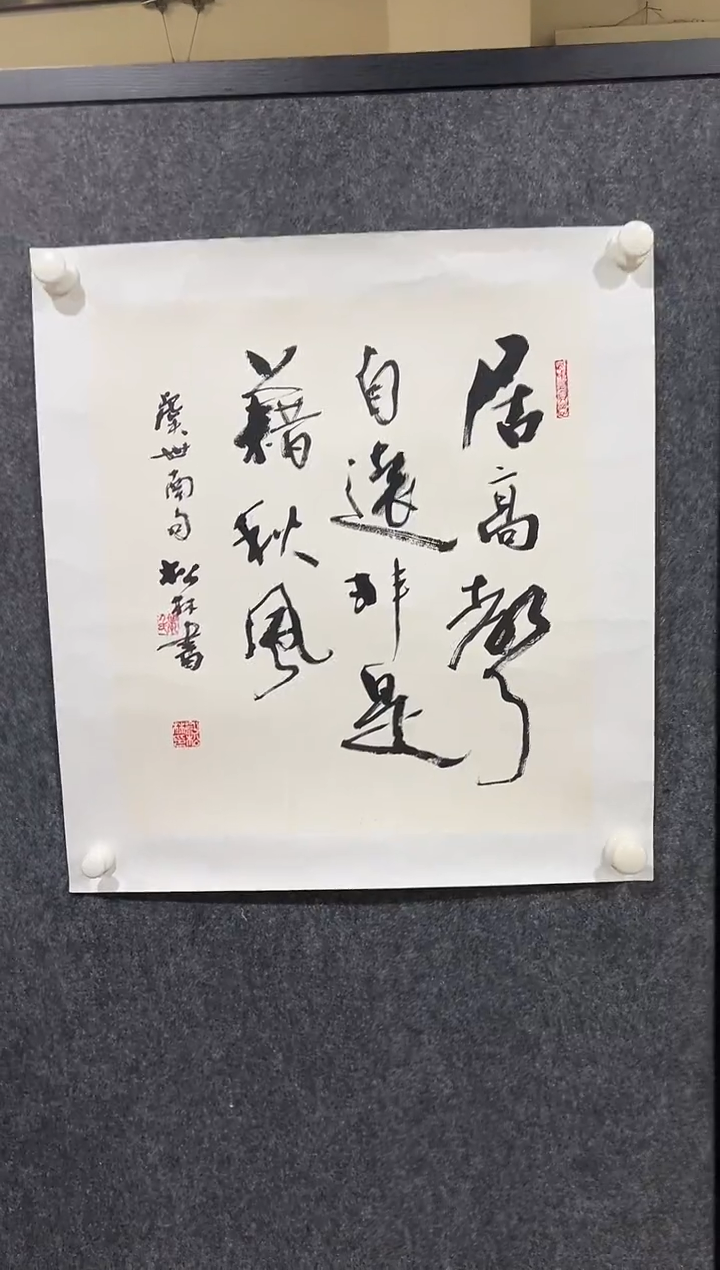 居高聲
自遠非是
藉秋風
虞世南句 松林書